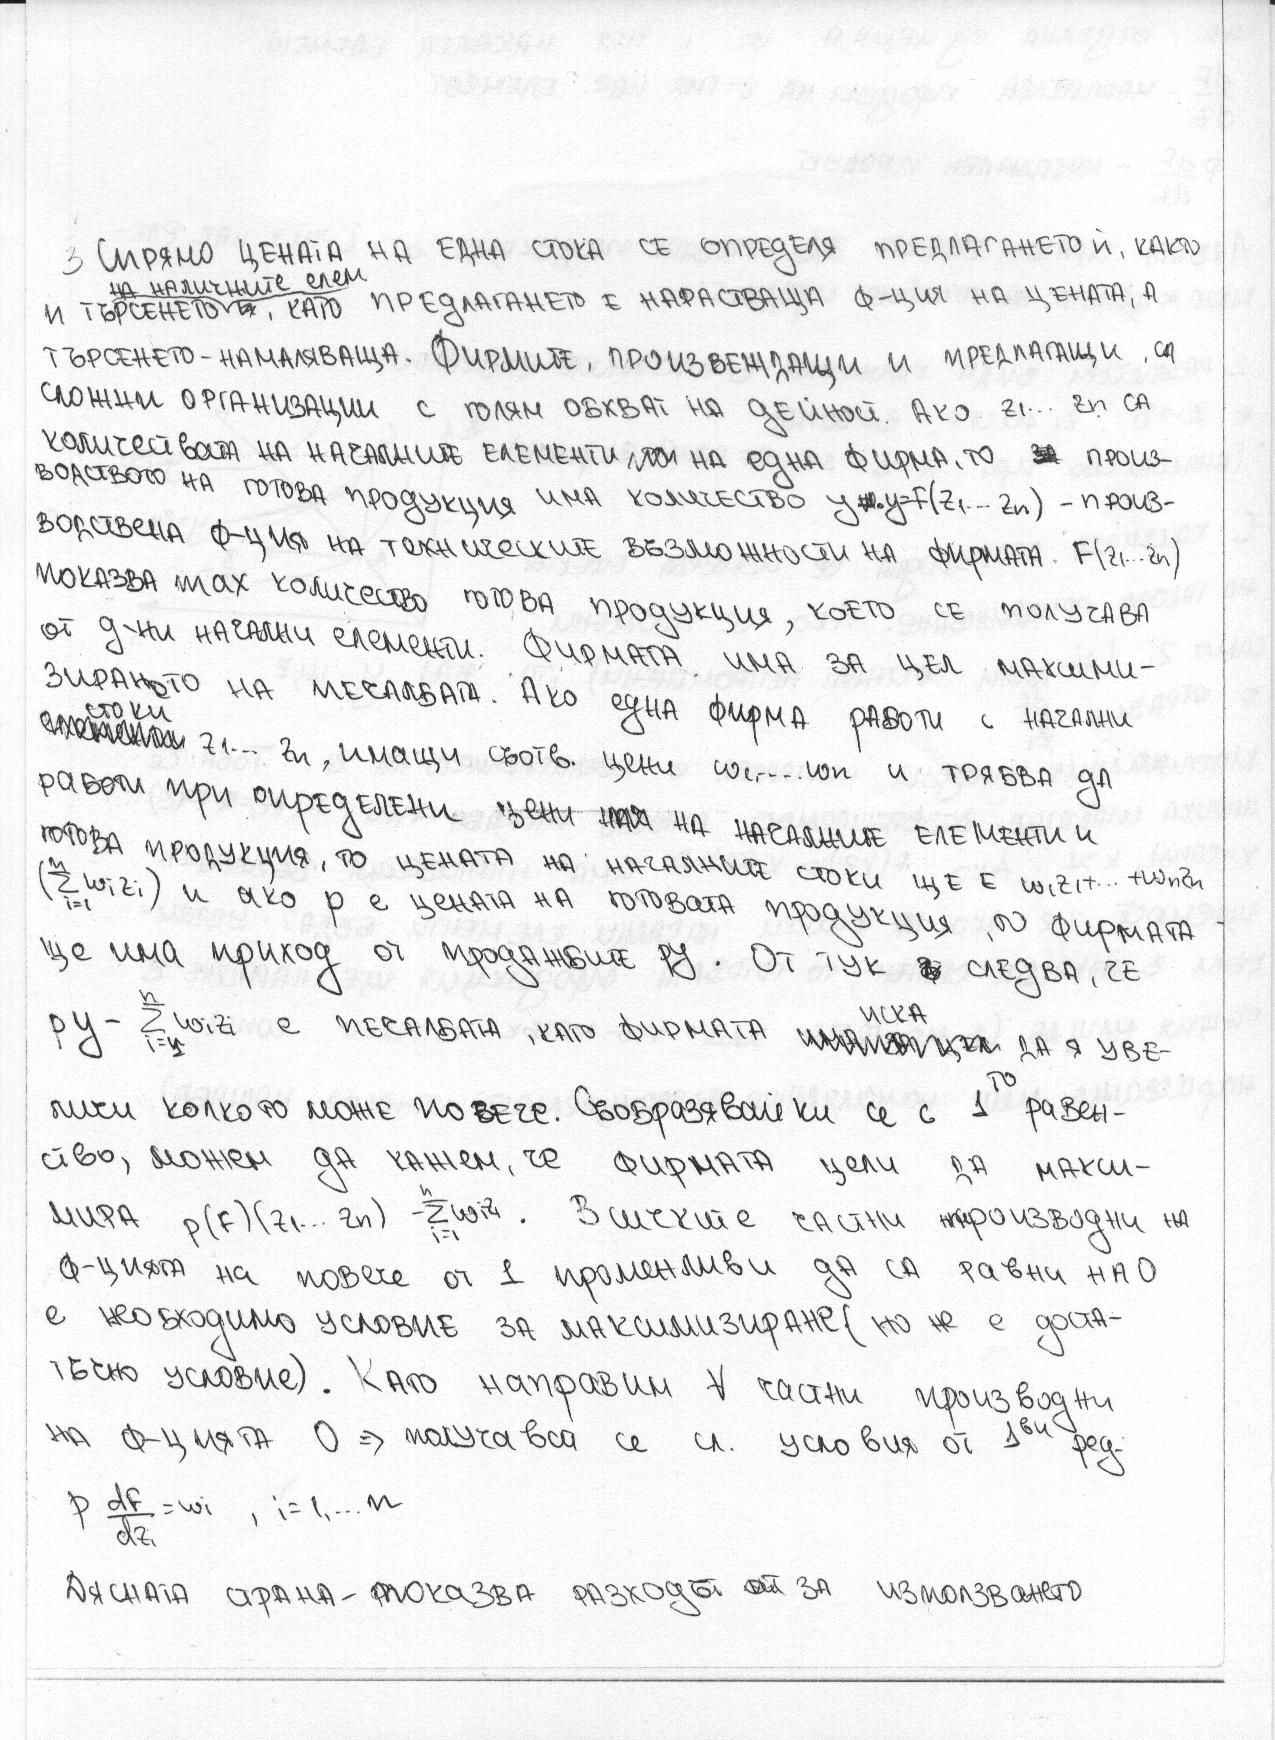 3 Спрямо цената на една стока се определя предлагането ѝ, както
на наличните елем
и търсенето, като предлагането е нарастваща ф-ция на цената, а
търсенето - намаляваща. Фирмите, произвеждащи и предлагащи, са
сложни организации с голям обхват на дейност. Ако z1... zn са
количествата на началните елементи на една фирма, то произ-
водството на готова продукция има количество y. y=F(z1...zn) - произ-
водствена ф-ция на техническите възможности на фирмата. F(z1...zn)
показва max количество готова продукция, което се получава
от д-ни начални елементи. Фирмата има за цел максими-
зирането на печалбата. Ако една фирма работи с начални
стоки
z1... zn, имащи съотв. цени w1,...wn и трябва да
работи при определени цени на началните елементи и
готова продукция, то цената на началните стоки ще е w1z1+...+wnzn
(∑ⁿᵢ₌₁ wizi) и ако p е цената на готовата продукция, то фирмата
ще има приход от продажбите py. От тук следва, че
py - ∑ⁿᵢ₌₁ wizi е печалбата, като фирмата иска да я уве-
личи колкото може повече. Съобразявайки се с 1то равен-
ство, можем да кажем, че фирмата цели да макси-
мира p(F)(z1... zn) - ∑ⁿᵢ₌₁ wizi. Всичките частни производни на
ф-цията на повече от 1 променливи да са равни на 0
е необходимо условие за максимизиране (но не е доста-
тъчно условие). Като направим ∀ частни производни
на ф-цията 0 ⇒ получават се сл. условия от 1ви ред:
p dF/dzi = wi , i=1,...n
Дясната страна - показва разходът за използването